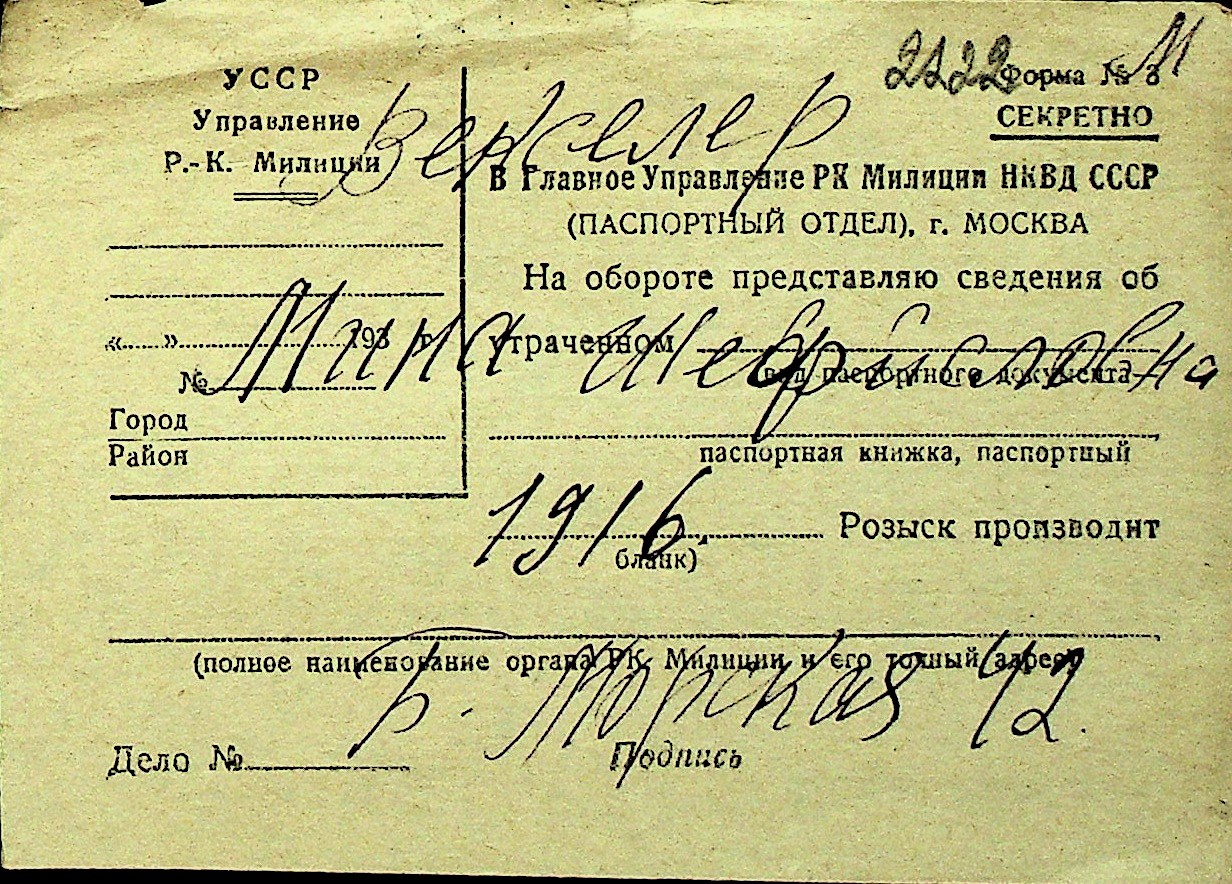 УССР
Управление
Р.-К. Милиции
«......»..................193 г.
№
Город
Район
2122 Форма № 8
М
СЕКРЕТНО
В Главное Управление РК Милиции НКВД СССР
(ПАСПОРТНЫЙ ОТДЕЛ), г. МОСКВА
На обороте представляю сведения об
утраченном
вид паспортного документа—
паспортная книжка, паспортный
бланк)
Розыск производит
(полное наименование органа РК. Милиции и его точный адрес)
Дело №
Подпись
Векслер
Мина
1916.
Б. Морская 42.